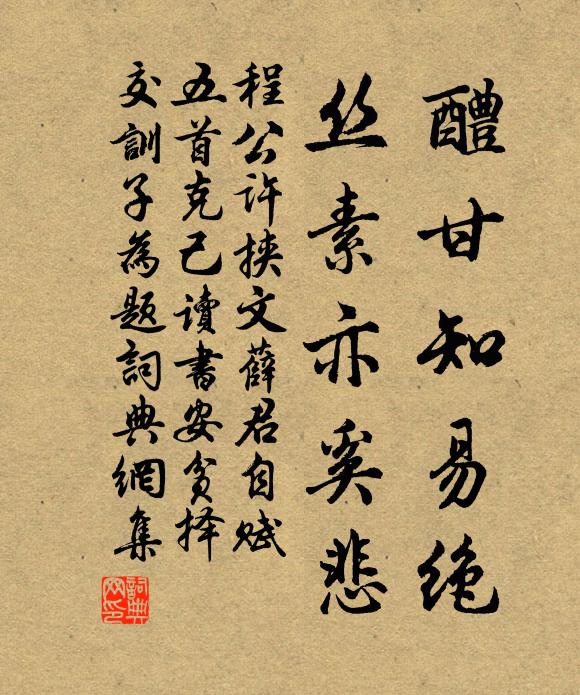 醴甘知易绝
丝素亦奚悲
程公许挟文薛君自赋
五首克己读书安贫择
交训子为题词典网集
词典网印